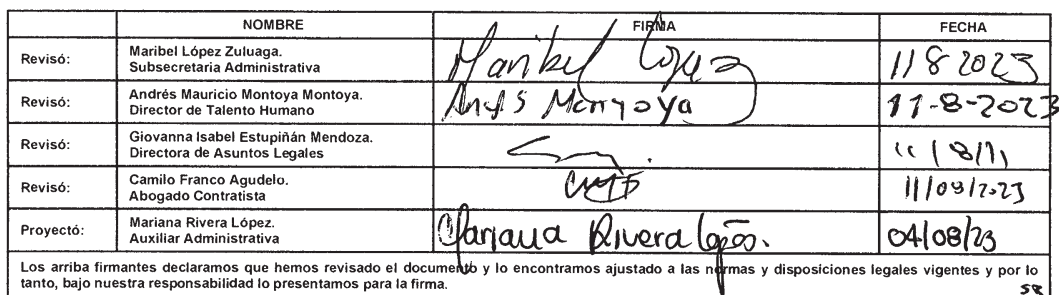 NOMBRE FIRMA FECHA
Revisó: Maribel López Zuluaga.
Subsecretaria Administrativa
Maribel López 11 8 2023
Revisó: Andrés Mauricio Montoya Montoya.
Director de Talento Humano
Andrés Montoya 11-8-2023
Revisó: Giovanna Isabel Estupiñán Mendoza.
Directora de Asuntos Legales
Revisó: Camilo Franco Agudelo.
Abogado Contratista
11/08/2023
Proyectó: Mariana Rivera López.
Auxiliar Administrativa
Mariana Rivera López. 04/08/23
Los arriba firmantes declaramos que hemos revisado el documento y lo encontramos ajustado a las normas y disposiciones legales vigentes y por lo
tanto, bajo nuestra responsabilidad lo presentamos para la firma.